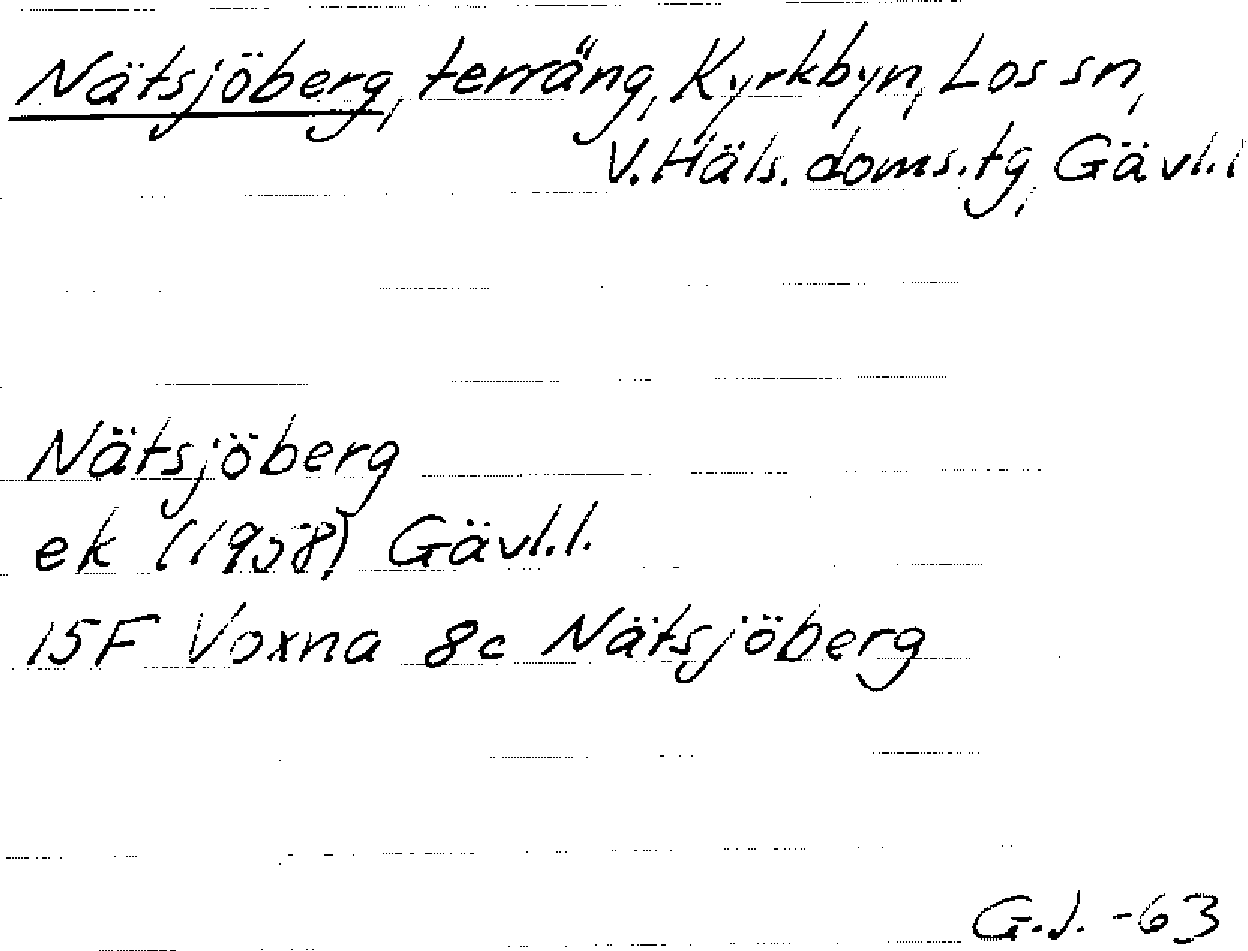 Nätsjöberg, terräng, Kyrkbyn, Los sn,
V. Häls. doms. tg, Gävl.l
Nätsjöberg
ek (1958) Gävl.l.
15F Voxna 8c Nätsjöberg
G.J. -63